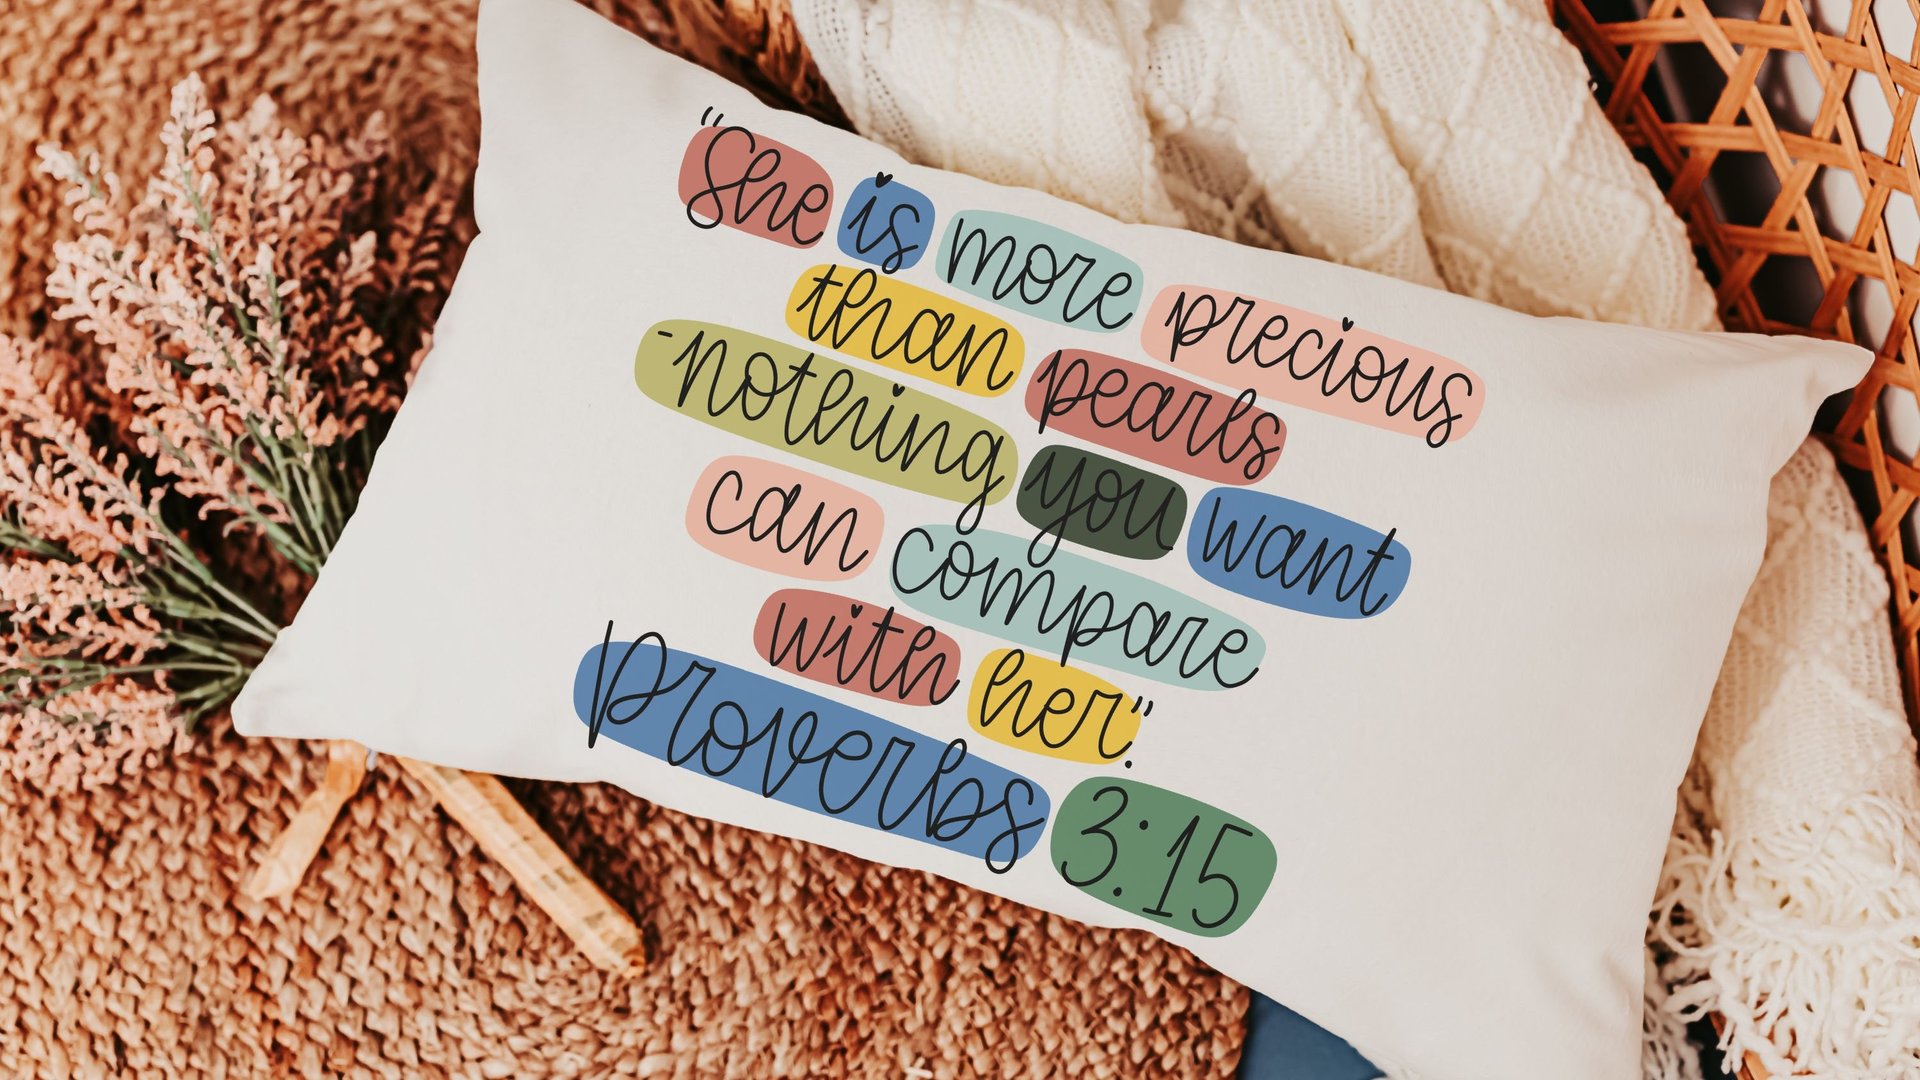 "She is more precious
than pearls
-nothing you want
can compare
with her."
Proverbs 3:15